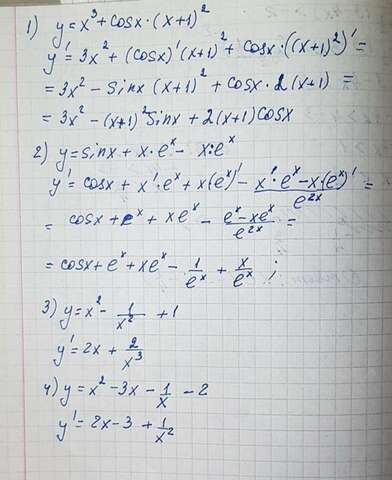 1) y = x³ + cosx · (x+1)²
y' = 3x² + (cosx)'(x+1)² + cosx · ((x+1)²)' =
= 3x² - sinx (x+1)² + cosx · 2(x+1) =
= 3x² - (x+1)² sinx + 2(x+1)cosx
2) y = sinx + x·eˣ - x:eˣ
y' = cosx + x'·eˣ + x(eˣ)' - (x'·eˣ - x·(eˣ)')/e²ˣ =
= cosx + eˣ + xeˣ - (eˣ - xeˣ)/e²ˣ =
= cosx + eˣ + xeˣ - 1/eˣ + x/eˣ ;
3) y = x² - 1/x² + 1
y' = 2x + 2/x³
4) y = x² - 3x - 1/x - 2
y' = 2x - 3 + 1/x²